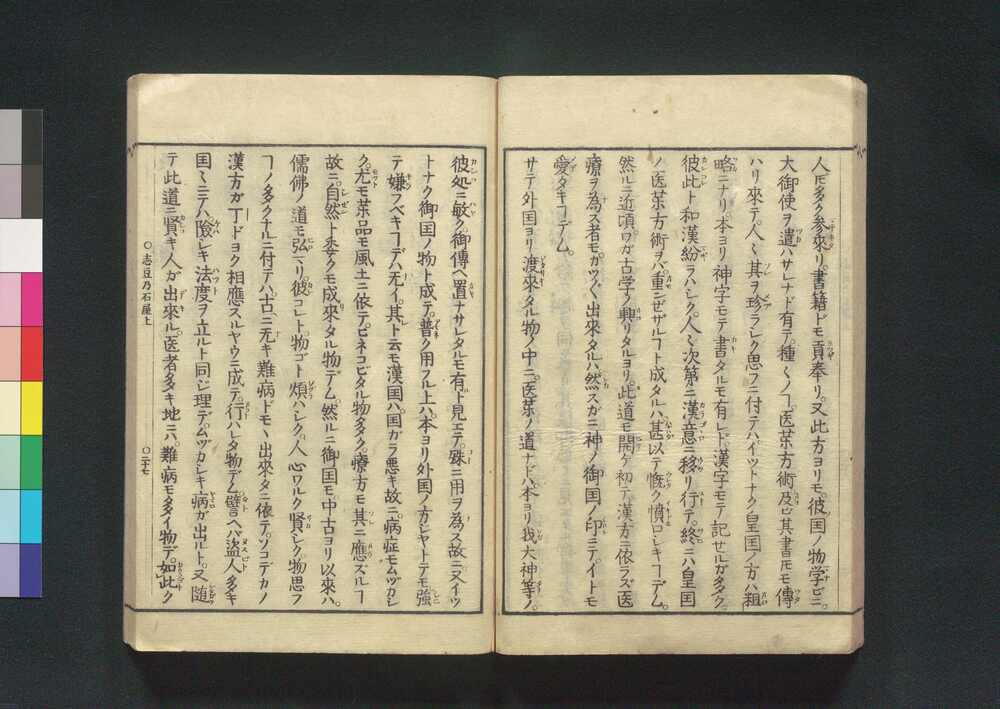 人𪜈多ク参來リ。書籍ドモ貢奉リ。又此方ヨリモ。彼国ノ物学ビニ。
大御使ヲ遣ハサレナド有テ。種〻ノヿ。医茶方術及ビ其書𪜈モ傳
ハリ來テ。人〻其ヲ珍ラシク思フニ付テハイツトナク皇国ノ方ハ粗
略ニナリ。本ヨリ神字モテ書タルモ有レド。漢字モテ記セルガタク。
彼此ト和漢紛ラハシク。人〻次第ニ漢意ニ移リ行テ。終ニハ皇国
ノ医茶方術ヲバ重ニセザルヿト成タルハ。甚以テ慨ク憤ロシキヿデム。
然ルニ近頃ワガ古学ノ興リタルヨリ。此道モ開ケ初テ。漢方ニ依ラズ医
療ヲ為ス者モ。ガツ〴〵出來タルハ然スガニ神ノ御国ノ印ニテ。イトモ
愛タキヿデム。
サテ外国ヨリ渡來タル物ノ中ニ。医茶ノ道ナドハ。本ヨリ我大神等ノ。
彼処ニ敏ク。御傳ヘ置ナサレタルモ有ト見エテ。殊ニ用ヲ為ス故ニ。又イツ
トナク御国ノ物ト成テ。普ク用フル上ハ。本ヨリ外国ノ方シヤトテモ。強
テ嫌フベキヿデハ无イ。其ト云モ漢国ハ。国ガラ悪キ故ニ。病症モムヅカシ
ク。尤モ茶品モ風土ニ依テ。ヒネコビタル物多ク。療方モ其ニ應ズルヿ
故ニ。自然ト委クモ成來タル物デム。然ルニ御国モ。中古ヨリ以來ハ。
儒佛ノ道モ弘マリ。彼コレト。物ゴト煩ハシク。人心ワルク賢シク物思フ
ヿノ多クナルニ付テハ。古ニ无キ難病ドモヽ出來タニ依テ。ソコデカノ
漢方ガ丁ドヨク相應スルヤウニ成テ。行ハレタ物デム。譬ヘバ。盗人多キ
国〻ニテハ。險シキ法度ヲ立ルト同ジ理デ。ムヅカシキ病ガ出ルト。又随
テ此道ニ賢キ人ガ出來ル。医者多キ地ニハ。難病モタヾイ物デ。如此ク
〇志豆乃石屋上
〇二十七